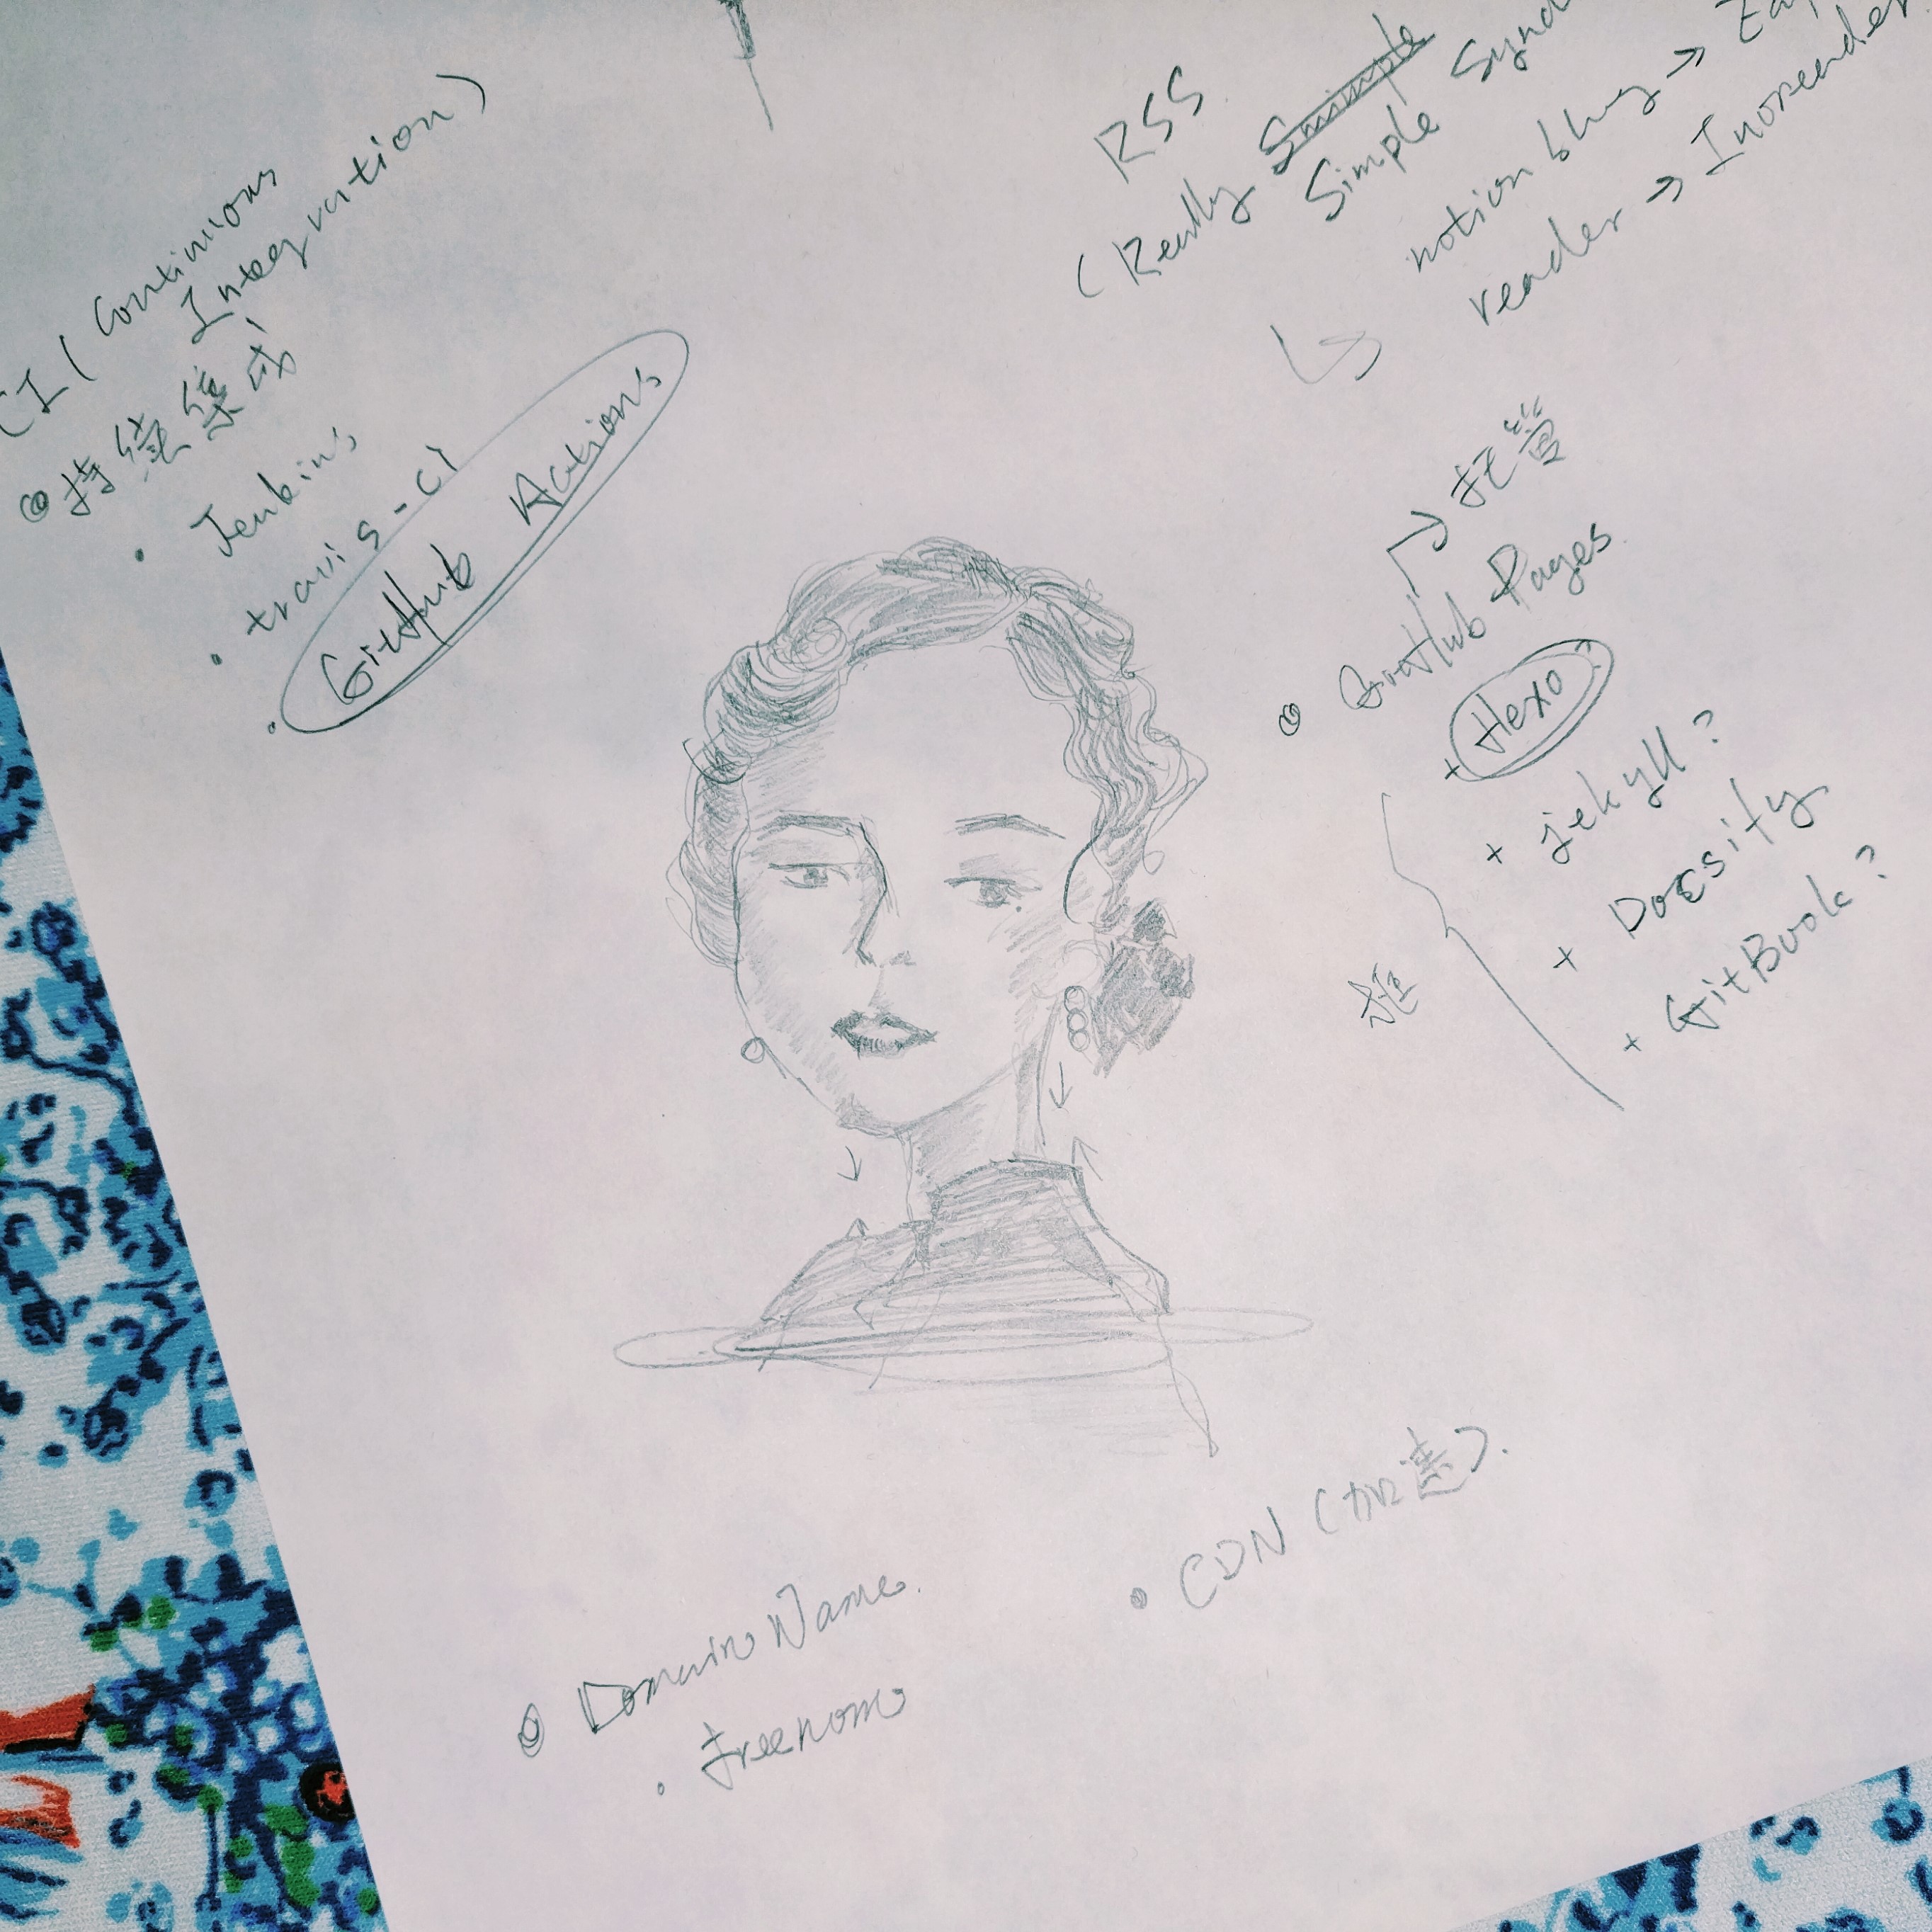 CI (Continious
Integration)
持续集成
Jenkins
travis-ci
GitHub Actions
RSS
(Really Smimple
Simple
notion blog →
reader → Inoreader
托管
GitHub Pages
+ Hexo?
+ jekyll?
+ Docsify
+ GitBook?
Domain Name.
Freenom
CDN (加速).